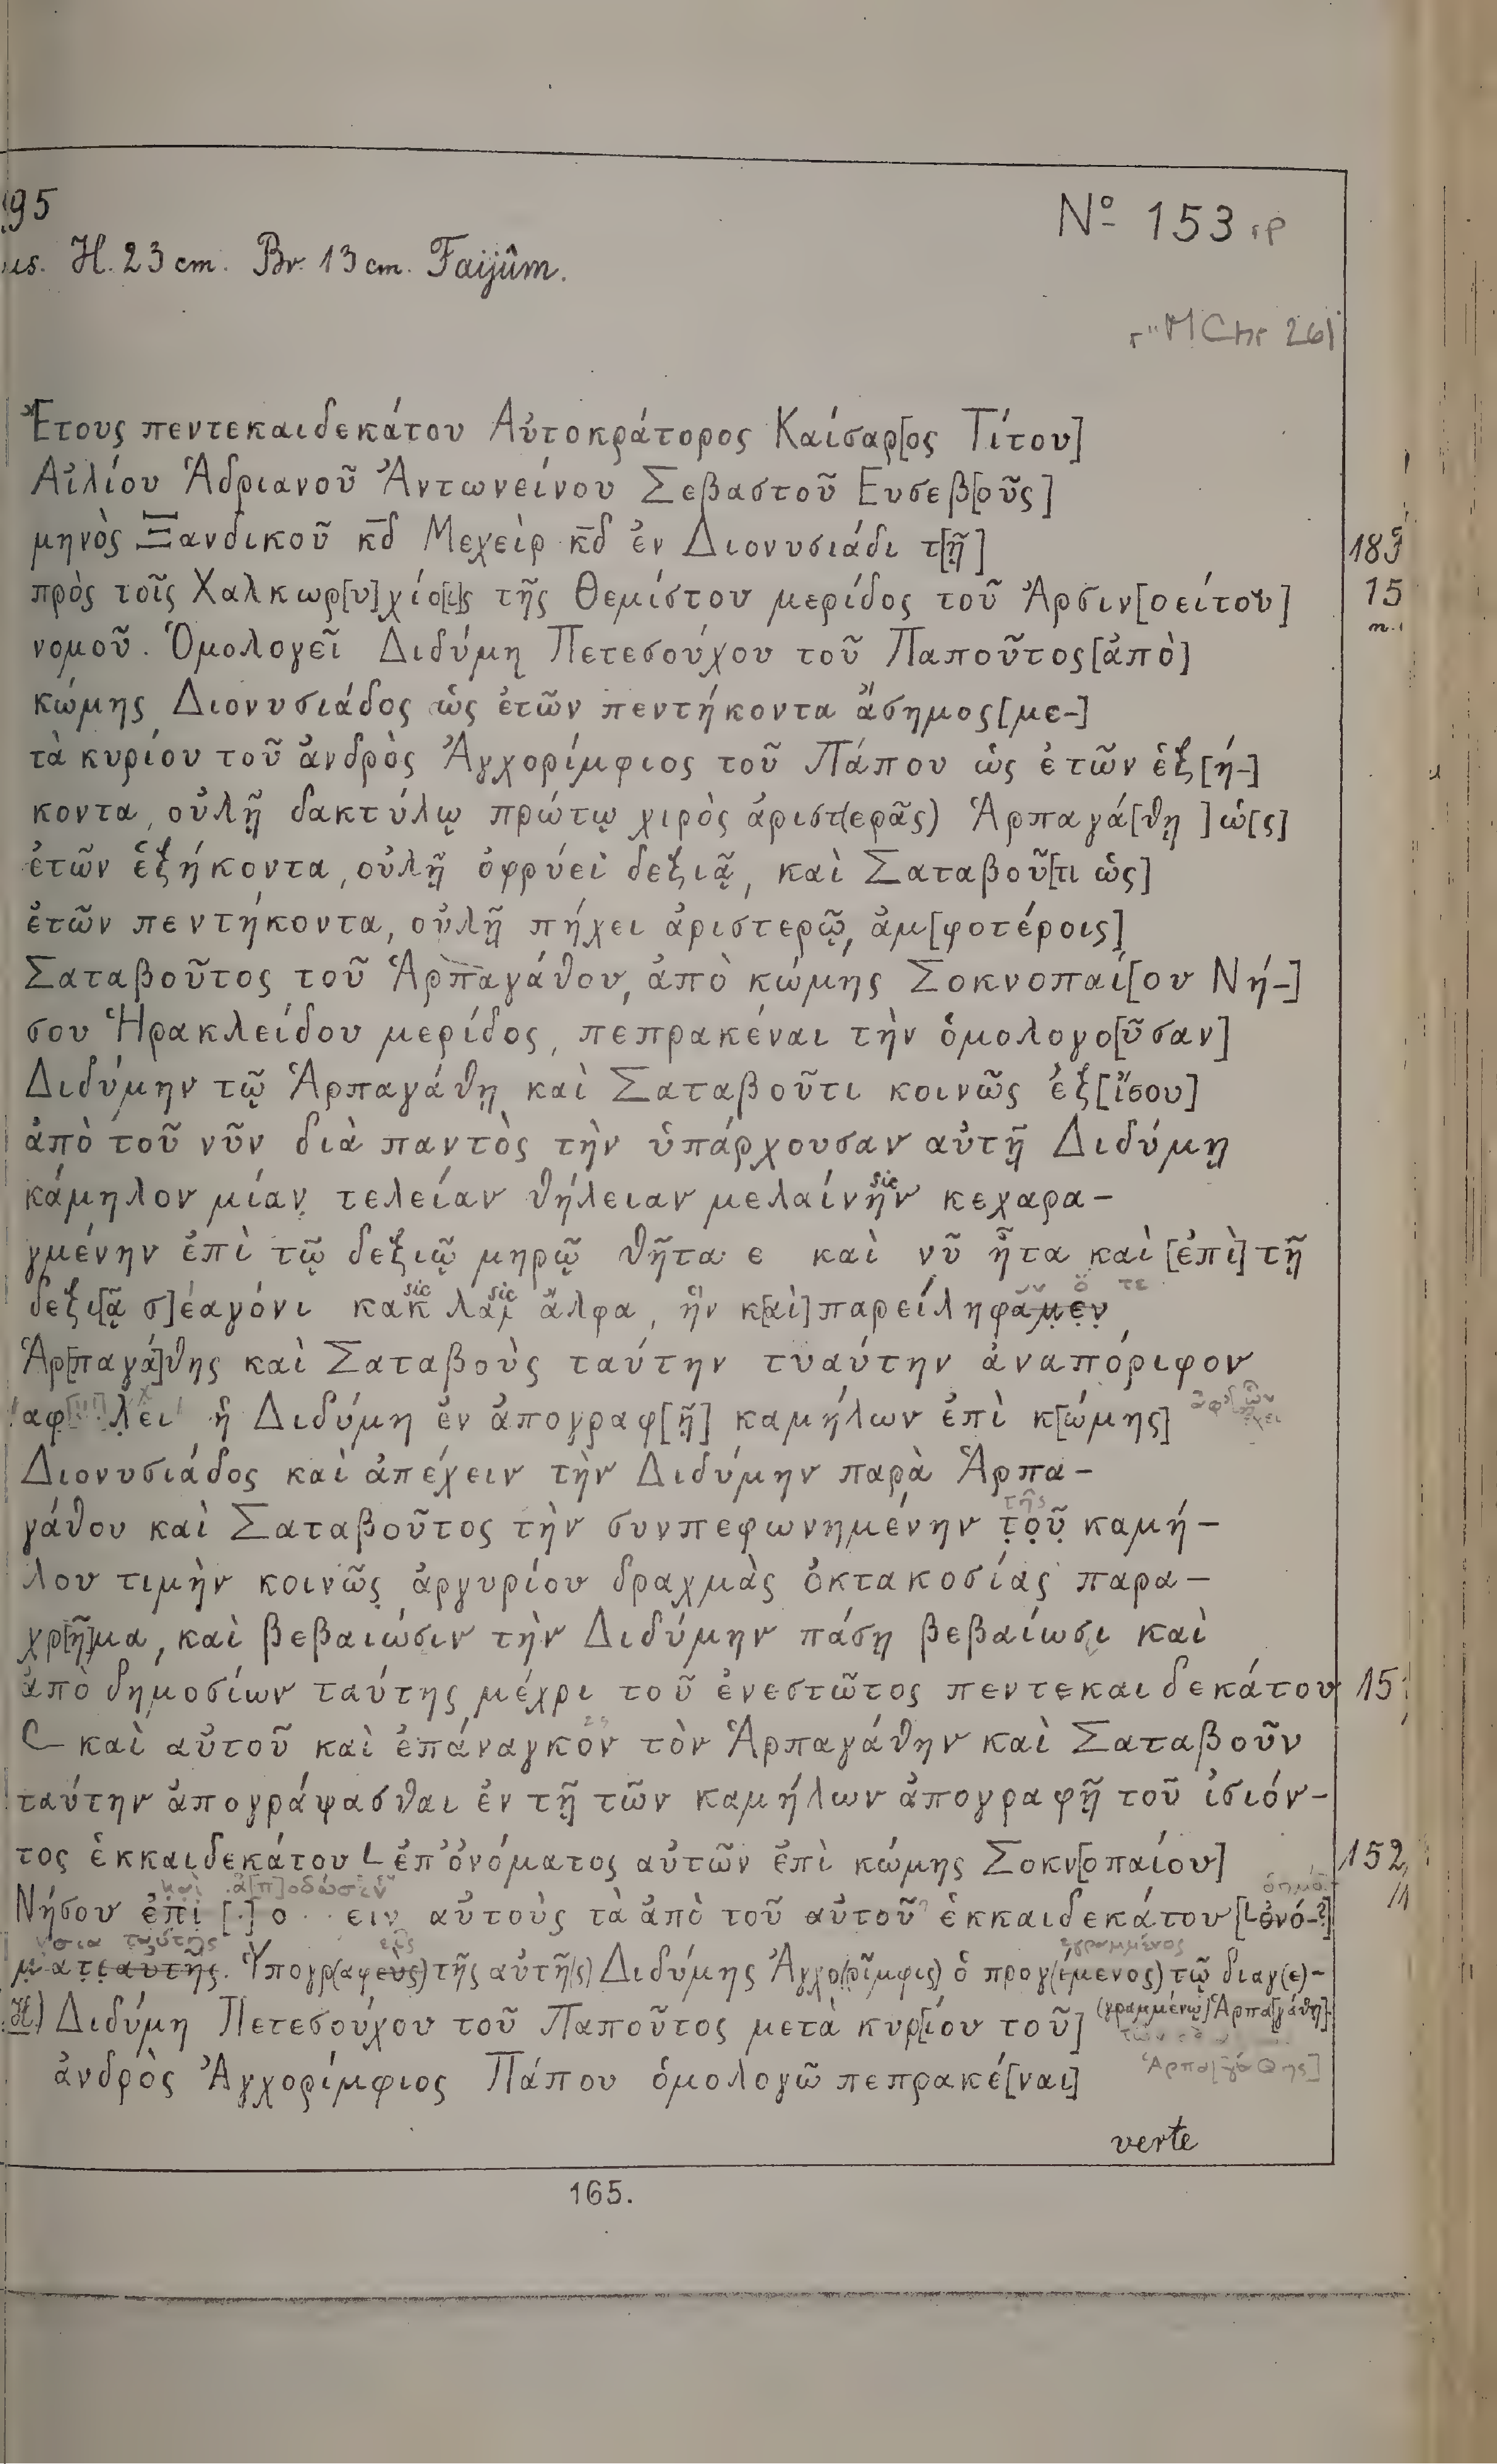 95
Nº 153
us. H. 23 cm. Br. 13 cm. Faijûm.
MChr 261
Ἔτους πεντεκαιδεκάτου Αὐτοκράτορος Καίσαρ[ος Τίτου]
Αἰλίου Ἁδριανοῦ Ἀντωνείνου Σεβαστοῦ Ευσεβ[οῦς]
μηνὸς Ξανδικοῦ κ̅δ Μεχεὶρ κ̅δ ἐν Διονυσιάδι τ[ῇ]
πρὸς τοῖς Χαλκωρ[υ]χίο[ι]ς τῆς Θεμίστου μερίδος τοῦ Ἀρσιν[οείτου]
15
νομοῦ. Ὁμολογεῖ Διδύμη Πετεσούχου τοῦ Παποῦτος [ἀπὸ]
κώμης Διονυσιάδος ὡς ἐτῶν πεντήκοντα ἄσημος [με-]
τὰ κυρίου τοῦ ἀνδρὸς Ἀγχορίμφιος τοῦ Πάπου ὡς ἐτῶν ἑξ[ή-]
κοντα, οὐλῇ δακτύλῳ πρώτῳ χιρὸς ἀριστ(ερᾶς) Ἁρπαγά[θῃ] ὡ[ς]
ἐτῶν ἑξήκοντα, οὐλῇ ὀφρύει δεξιᾷ, καὶ Σαταβοῦ[τι ὡς]
ἐτῶν πεντήκοντα, οὐλῇ πήχει ἀριστερῷ, ἀμ[φοτέροις]
Σαταβοῦτος τοῦ Ἁρπαγάθου, ἀπὸ κώμης Σοκνοπαί[ου Νή-]
σου Ἡρακλείδου μερίδος, πεπρακέναι τὴν ὁμολογο[ῦσαν]
Διδύμην τῷ Ἁρπαγάθῃ καὶ Σαταβοῦτι κοινῶς ἐξ [ἴσου]
ἀπὸ τοῦ νῦν διὰ παντὸς τὴν ὑπάρχουσαν αὐτῇ Διδύμῃ
κάμηλον μίαν τελείαν θήλειαν μελαίνην sic κεχαρα-
γμένην ἐπὶ τῷ δεξιῷ μηρῷ θῆτα ε καὶ νῦ ἦτα καὶ [ἐπὶ] τῇ
δεξι[ᾷ σ]εαγόνι κακ sic λαμ sic ἄλφα, ἣν κ[αὶ] παρείληφαμεν
Ἁρ[παγά]θης καὶ Σαταβοὺς ταύτην τυαύτην ἀναπόριφον
ἡ Διδύμη ἐν ἀπογραφ[ῇ] καμήλων ἐπὶ κ[ώμης]
Διονυσιάδος καὶ ἀπέχειν τὴν Διδύμην παρὰ Ἁρπα-
γάθου καὶ Σαταβοῦτος τὴν συνπεφωνημένην τοῦ καμή-
τῆς
λου τιμὴν κοινῶς ἀργυρίου δραχμὰς ὀκτακοσίας παρα-
χρ[ῆ]μα, καὶ βεβαιώσιν τὴν Διδύμην πάσῃ βεβαίωσι καὶ
ἀπὸ δημοσίων ταύτης μέχρι τοῦ ἐνεστῶτος πεντεκαιδεκάτου
15
L καὶ αὐτοῦ καὶ ἐπάναγκον τὸν Ἁρπαγάθην καὶ Σαταβοῦν
ταύτην ἀπογράψασθαι ἐν τῇ τῶν καμήλων ἀπογραφῇ τοῦ ἰσιόν-
τος ἑκκαιδεκάτου L ἐπ' ὀνόματος αὐτῶν ἐπὶ κώμης Σοκν[οπαίου]
152
καὶ ἀ[π]οδώσειν
Νήσου ἐπὶ [.] ο . . ειν αὐτοὺς τὰ ἀπὸ τοῦ αὐτοῦ ἑκκαιδεκάτου [L ὀνό-?]
σια ταύτης
ματι αὐτῆς. Ὑπογρ(αφεὺς) τῆς αὐτῆ(ς) Διδύμης Ἀγχο(ρῖμφις) ὁ προγ(εμενος) τῷ διαγ(ε)-
εγραμμένος
(γραμμένῳ) Ἁρπα[γάθῃ].
H.) Διδύμη Πετεσούχου τοῦ Παποῦτος μετὰ κυρ[ίου τοῦ]
ἀνδρὸς Ἀγχορίμφιος Πάπου ὁμολογῶ πεπρακέ[ναι]
Ἁρπα[γάθης]
verte
165.